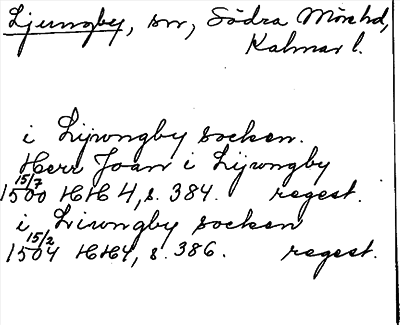 Ljungby, sn, Södra Mörehd,
Kalmar l.
i Lijwngby socken.
Herr Joan i Lijwngby
15/7 1500 HH 4, s. 384. regest.
i Liwngby socken
15/2 1504 HH4, s. 386. regest.